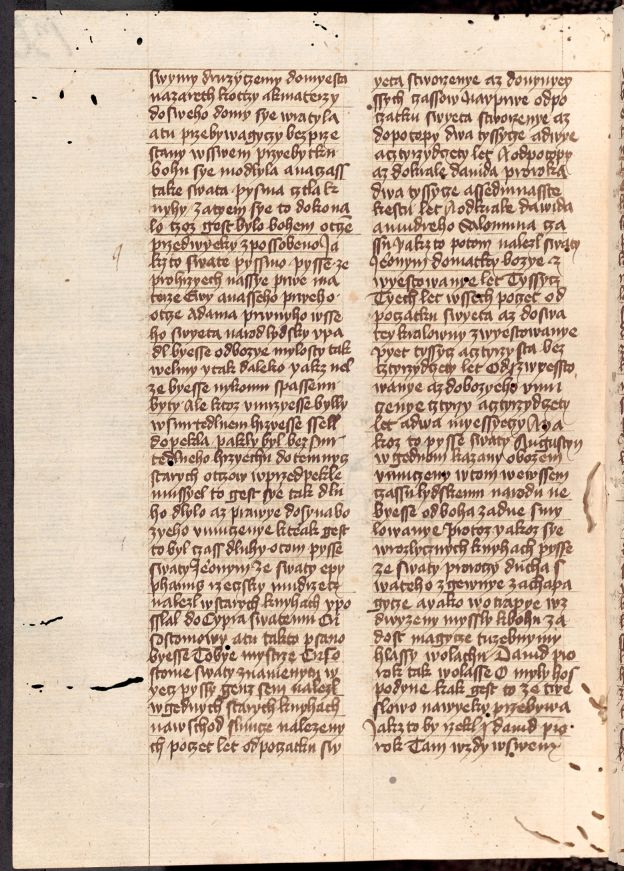 swymy druzyczemy domyesta
nazareth koczy akmaterzy
dosweho domu sye wratyla
atu przebywagyczy bezprze
stany wsswem przyebytku
bohu sye modlyla anagzass
take swata pysma cztla k
nyhy zatyem sye to dokona
lo czoz gest bylo bohem otcze
przedwyeky zpossobeno Ja
kz to swate pyssmo pysse ze
prohrzyech nassye prwe ma
terze Ewy anasseho prweho
otcze Adama prwnyho wsse
ho swyeta narod lydsky upa
dl byesse odbozye mylosty tak
welmy ytak daleko yakz nel
ze byesse nykomu spassenu
byty Ale ktoz umrzyesse bylly
wsmrtedlnem hrzyesse ssell
dopekla paklly byl bez smr
tedlneho hrzyechu do temnycz
starych otczow wprzedpekle
mussyel to gest sye tak dlu
ho dlylo az prawye dosynabo
zyeho umuczenye kterak gest
to byl czass dluhy otom pysse
swaty Jeronym ze swaty epy
phanius rzeczsky mudrzecz
nalezl wstarych knyhach ypo
sslal do Cypra swatemu Cri
sostomowy atu takto psano
byesse Tobye mystrze Criso
stome swaty znamenytu w
yecz pyssy genz sem nalezl
wgednych starych knyhach
naw schod slunce nalezeny
ch poczet let odpoczatku sw
yeta stworzenye az donynyey
ssych czassow Nayprwe odpo
czatku swyeta stworzenye az
dopotopy dwa tyssycze adwye
acztyrzydczety let A odpotopy
az dokrale dauida proroka
dwa tyssycze assedmnasste
kestu let A odkrale dawida
amudreho Salomuna cza
ssu Jakz to potom nalezl swaty
Jeronym domatky bozye z
wyestowanye let Tyssycz
Tyech let wssech poczet od
poczatku swyeta az doswa
tey kralowny zwyestowanye
Pyet tyssycz acztyrzysta bez
cztyrzydczety let Odzwyesto
wanye az dobozyeho umu
czenye cztyrzy acztyrzydczety
let adwa myessyecze A ja
koz to pysse swaty Augustyn
wgednom kazany obozem
umuczeny wtom wewssem
czassu lydskemu narodu ne
byesse od boha zadne smy
lowanye Protoz yakoz sye
wrozlycznych knyhach pysse
ze swaty prorocy ducha s
wateho zgewnye zachapa
gycze ayako wotrapye wz
dwyzeny myssly kbohu za
dost magycze tuzebnymy
hlassy wolachu Dauid pro
rok tak wolasse O myly hos
podyne kak gest to ze twe
slowo nawyeky przebywa
Jakz to by rzekl dauid pro
rok Tam wzdy wswem